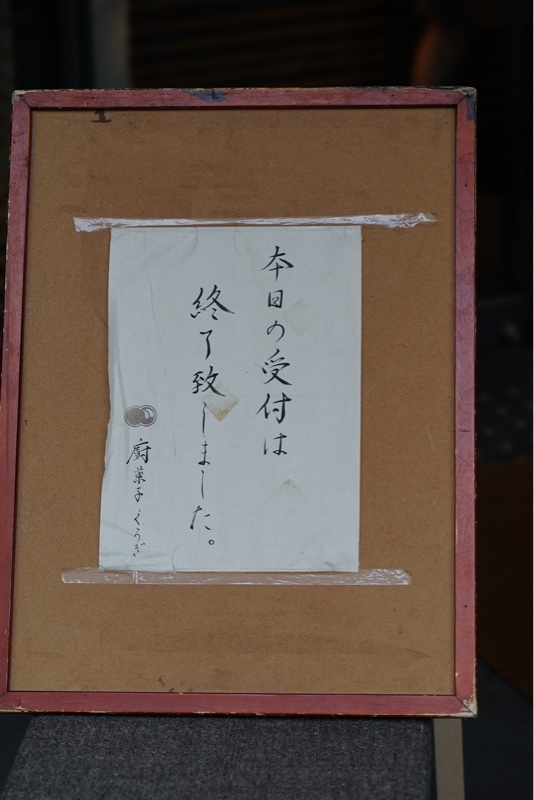 本日の受付は
終了致しました。
廚菓子くろぎ